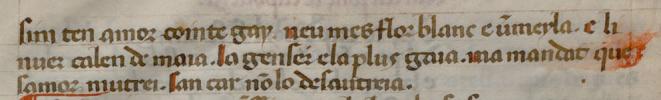 sim ten amor cointe gay. neu mes flor blanc e ūmeyla. e li
nuer calen de maia. la genser e la plus gaia. ma mandat que
samor mutrei. san car nō lo desautreia.